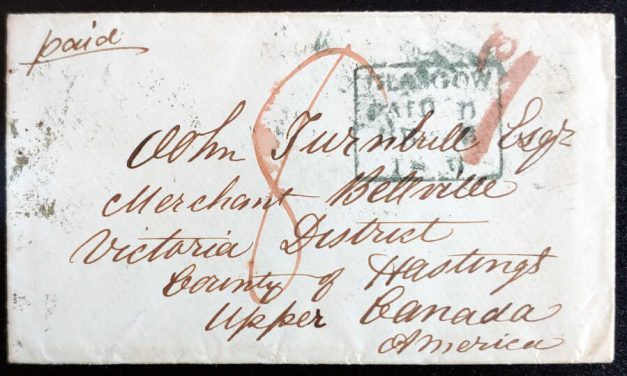 paid
8
GLASGOW
PAID
John Turnbull Esqr
Merchant Bellville
Victoria District
County of Hastings
Upper Canada
America